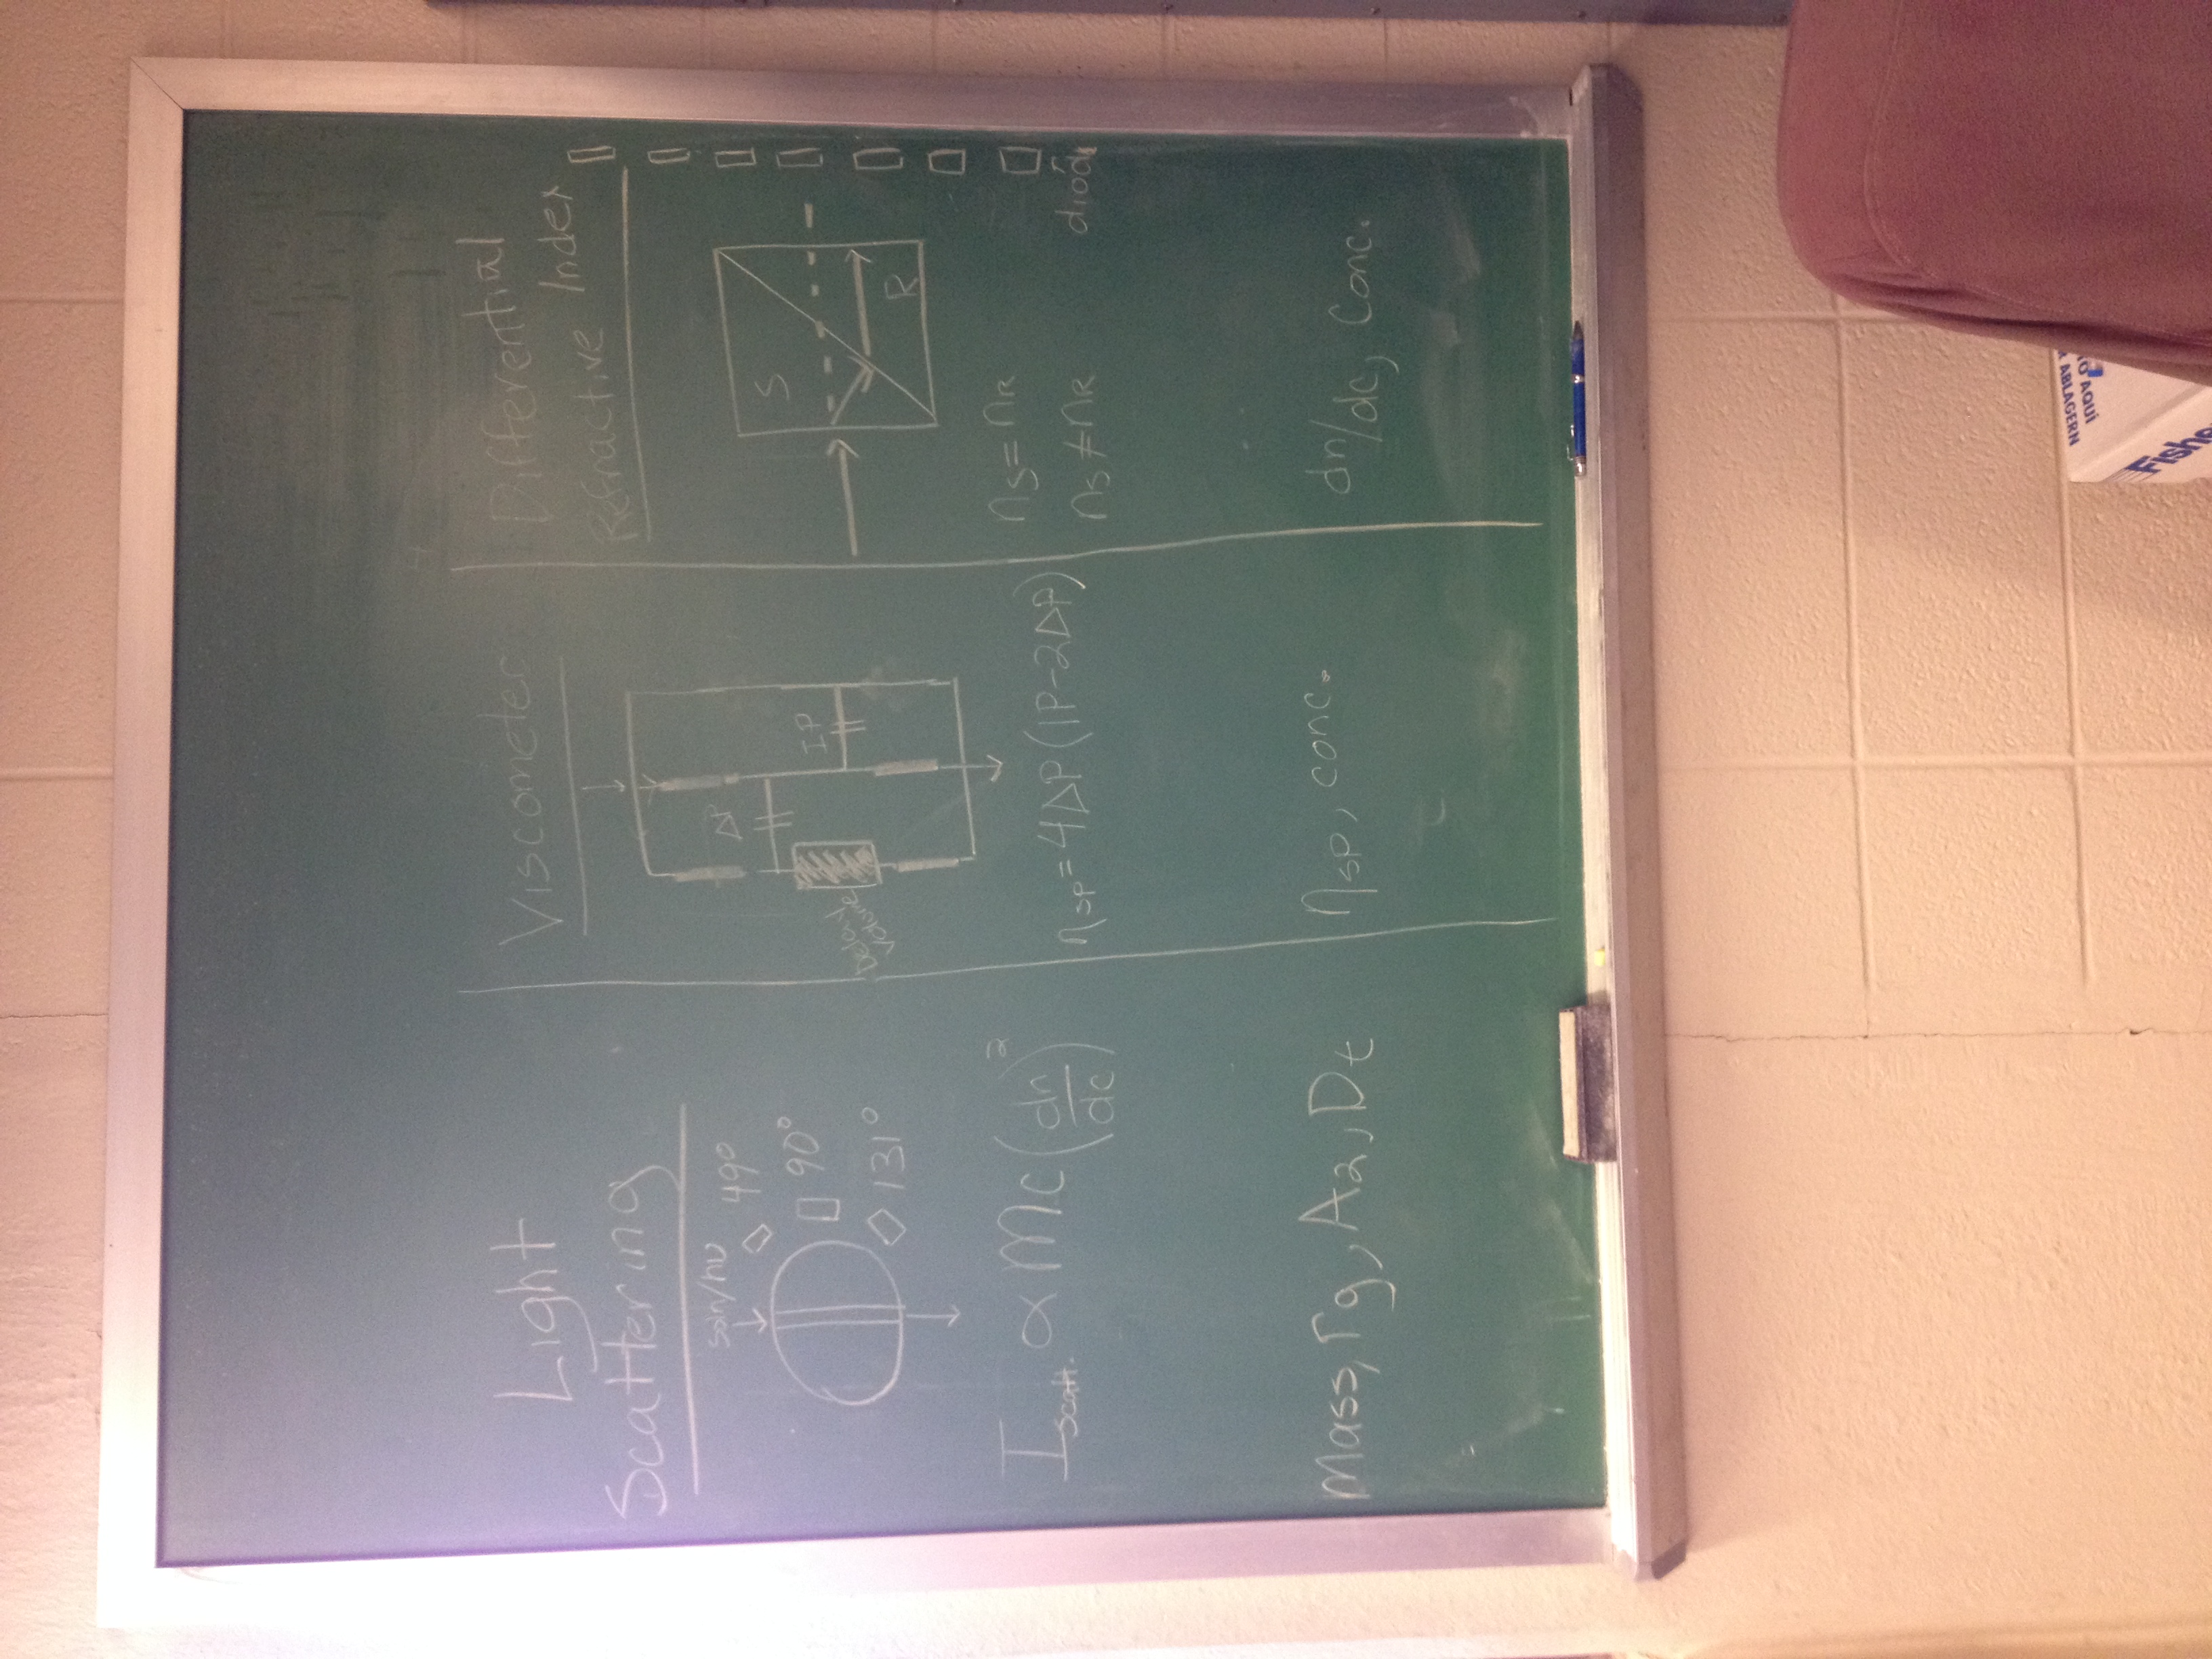 Light
Scattering
soln/hν
49°
90°
131°
I scatt. ∝ Mc (dn/dc)²
Mass, rg, A₂, Dt
Viscometer
ΔP
IP
Delay
Volume
ηsp = 4ΔP(IP-2ΔP)
ηsp, conc.
Differential
Refractive Index
S
R
diode
ns = nR
ns ≠ nR
dn/dc, conc.
O AQUÍ
ABLAGERN
Fishe